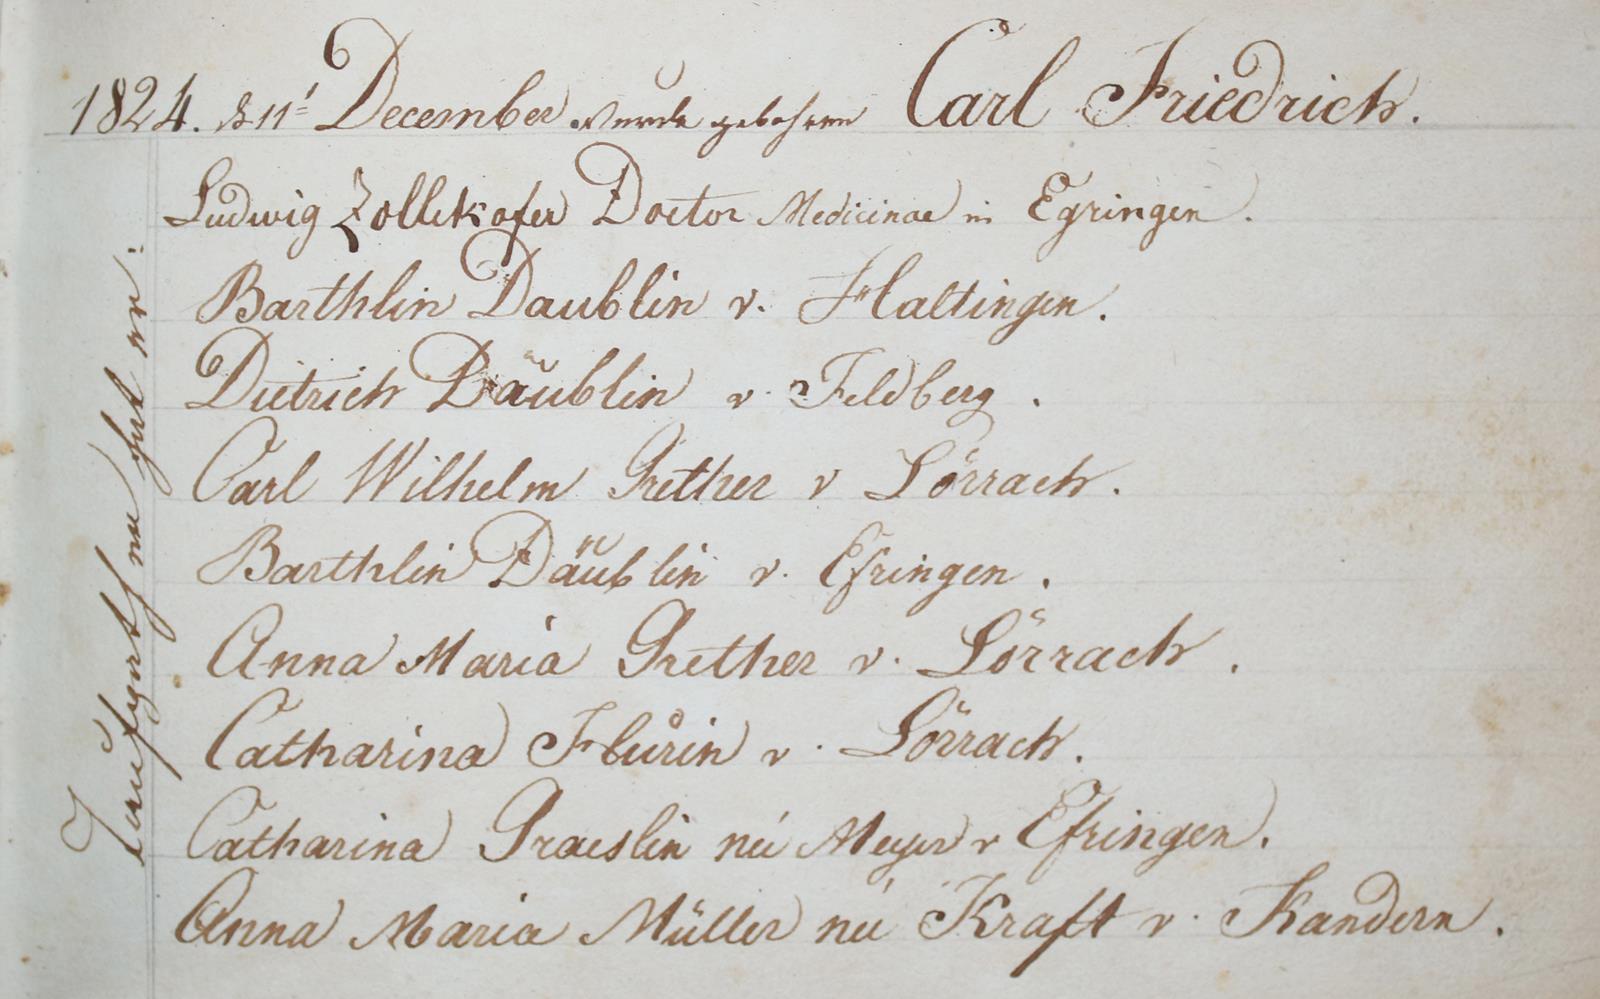 1824. d 11' December wurde gebohren Carl Friedrich.
Taufgert
Ludwig Zollikofer Doctor Medicinae in Egringen.
Barthlin Daublin v. Haltingen.
Dietrich Däublin v. Feldberg.
Carl Wilhelm Grether v Lörrach.
Barthlin Däublin v. Efringen.
Anna Maria Grether v. Lörrach.
Catharina Flurin v. Lörrach.
Catharina Graeslin né Meyer v Efringen.
Anna Maria Müller né Kraft v. Kandern.